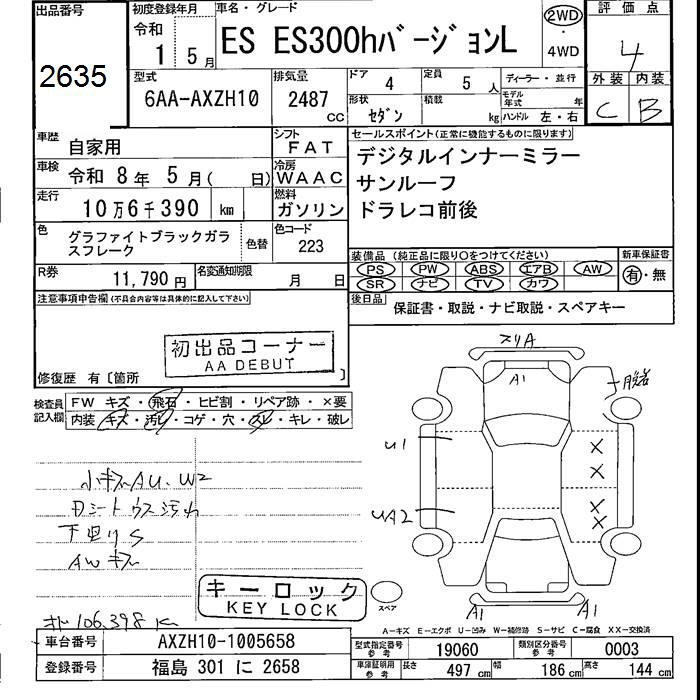 出品番号
2635
初度登録年月
令和
1 5月
車名・グレード
ES ES300hバージョンL
2WD
・
4WD
評価点
4
外装 内装
C B
型式
6AA-AXZH10
排気量
2487
CC
ドア 4
定員 5 人
形状 セダン
積載 kg
ディーラー・並行
モデル年式 年
ハンドル 左・右
車歴 自家用
シフト FAT
車検 令和 8年 5月( 日)
冷房 WAAC
走行 10万6千390 km
燃料 ガソリン
色 グラファイトブラックガラスフレーク
色替
色コード 223
R券 11,790円
名変通知期限 月 日
セールスポイント(正常に機能するものに限ります)
デジタルインナーミラー
サンルーフ
ドラレコ前後
装備品 (純正品に限り○をつけてください)
PS PW ABS エアB AW
SR ナビ TV カワ
新車保証書
有・無
後日品
保証書・取説・ナビ取説・スペアキー
注意事項申告欄(不具合内容等は具体的に記入して下さい)
初出品コーナー
AA DEBUT
修復歴 有〔箇所 〕
検査員記入欄
FW キズ・飛石・ヒビ割・リペア跡・×要
内装 キズ・汚レ・コゲ・穴・スレ・キレ・破レ
小キズAU、W2
下廻りS
AWキズ
106,398 K
キーロック
KEY LOCK
スリA
A1
U1
UA2
A1
A1
スペア
A-キズ E-エクボ U-凹み W-補修跡 S-サビ C-腐食 XX-交換済
車台番号 AXZH10-1005658
登録番号 福島 301 に 2658
型式指定番号参考 19060
類別区分番号参考 0003
車庫証明用参考
長さ 497 幅 186 高さ 144 cm